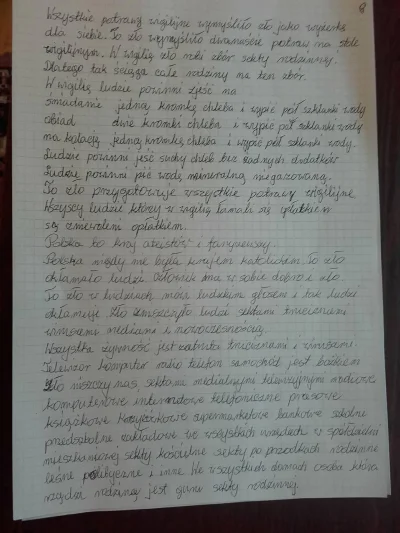 8
Wszystkie potrawy wigilijne wymyśliło zło jako wyżerkę
dla siebie. To zło wymyśliło dwanaście potraw na stole
wigilijnym. W wigilię zło robi zbór sekty rodzinnej.
Dlatego tak ściąga całe rodziny na ten zbór.
W wigilię ludzie powinni zjeść na
śniadanie jedną kromkę chleba i wypić pół szklanki wody
obiad dwie kromki chleba i wypić pół szklanki wody
na kolację jedną kromkę chleba i wypić pół szklanki wody.
Ludzie powinni jeść suchy chleb bez żadnych dodatków
Ludzie powinni pić wodę mineralną niegazowaną.
To zło przygotowuje wszystkie potrawy wigilijne
Wszyscy ludzie którzy w wigilię łamali się opłatkiem
są opłatkiem.
Polska to kraj ateistów i
Polska nigdy nie była krajem katolickim. To zło
okłamało ludzi. Człowiek ma w sobie dobro i zło.
To zło w ludziach mówi ludzkim głosem i tak ludzi
okłamuje. Zło zniszczyło ludzi sektami truciznami
wirusami mediami i nowoczesnością.
Wszystka żywność jest zatruta truciznami i wirusami.
Telewizor komputer radio telefon samochód jest bożkiem
Zło niszczy nas sektami medialnymi telewizyjnymi radiowe
komputerowe internetowe telefoniczne prasowe
książkowe supermarketowe bankowe szkolne
przedszkolne zakładowe we wszystkich urzędach w spółdzielni
mieszkaniowej sekty kościelne sekty po przodkach rodzinne
leśne polityczne i inne. We wszystkich domach osoba która
rządzi rodziną jest guru sekty rodzinnej.